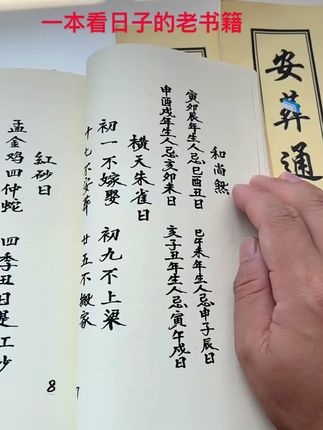 一本看日子的老书籍
安葬通
和尚煞
寅卯辰年生人忌巳酉丑日 巳午未年生人忌申子辰日
申酉戌年生人忌亥卯未日 亥子丑年生人忌寅午戌日
横天朱雀日
初一不嫁娶 初九不上梁
十七不安葬 廿五不搬家
7
紅砂日
孟金鸡四仲蛇 四季丑日是
8